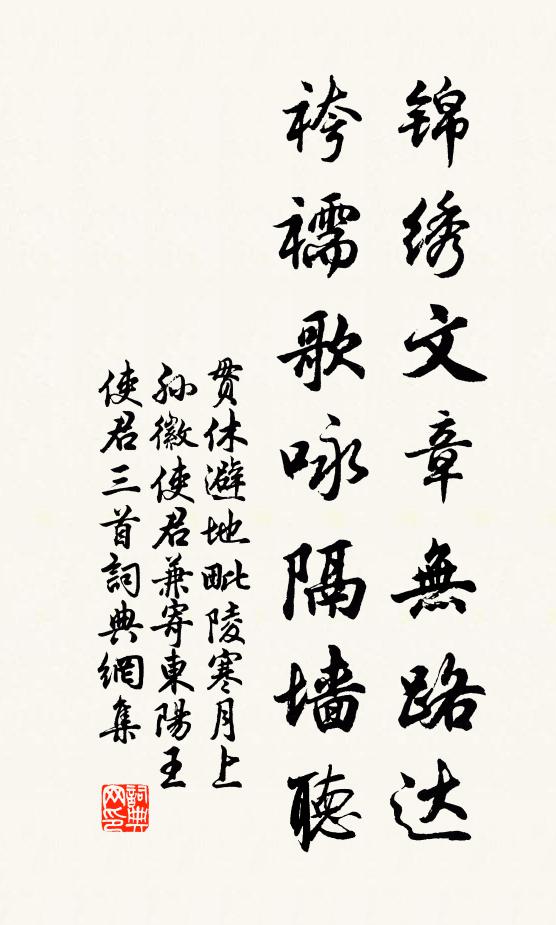 锦绣文章無路达
袴襦歌咏隔墙聽
贯休避地毗陵寒月上
孙徽使君兼寄東陽王
使君三首詞典網集
詞典网印